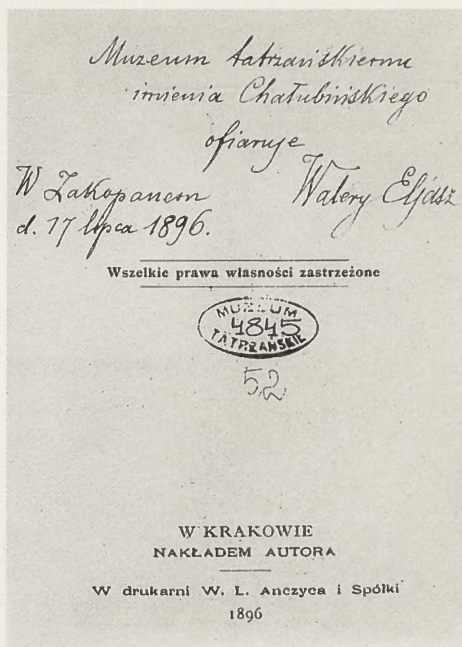 Muzeum tatrzańskiemu
imienia Chałubińskiego
ofiaruje
W Zakopanem
d. 17 lipca 1896.
Walery Eljasz
Wszelkie prawa własności zastrzeżone
MUZEUM
4845
TATRZAŃSKIE
52
W KRAKOWIE
NAKŁADEM AUTORA
W drukarni W. L. Anczyca i Spółki
1896